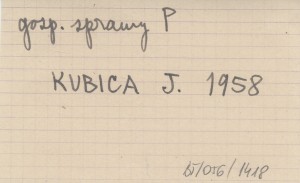 gosp. sprawy P
KUBICA J. 1958
BJ/OTG/1418